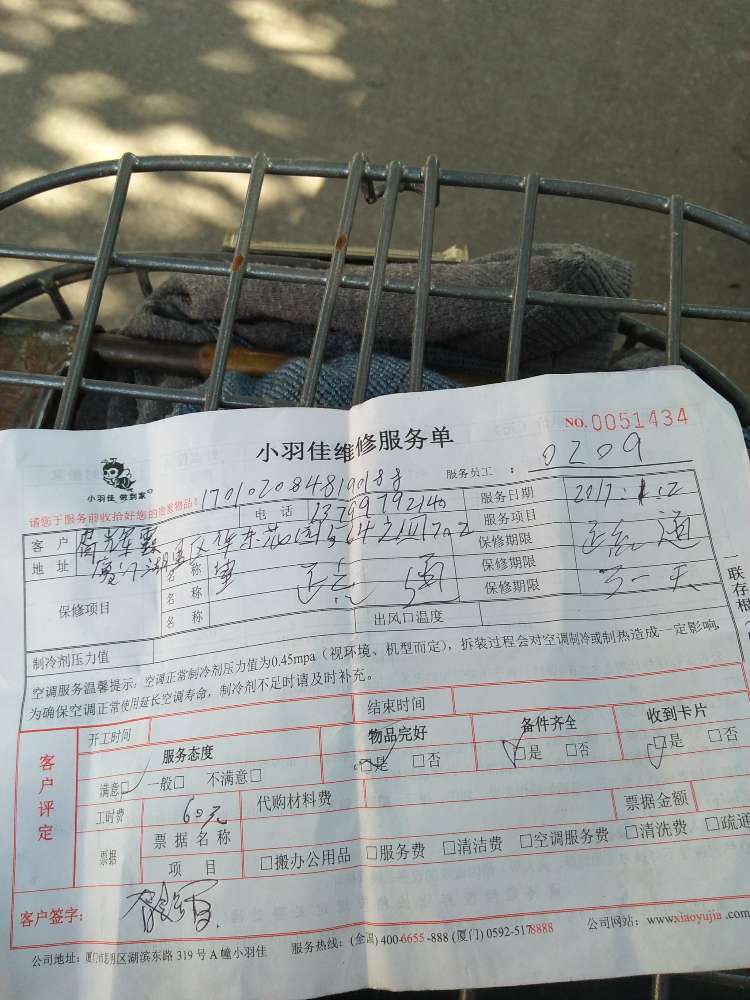 NO.0051434
小羽佳维修服务单
小羽佳 做到家
服务员工 : 0209
请您于服务前收拾好您的贵重物品! 1701020848190188
客 户 电 话 13799792140 服务日期 2017.1.2
地 址 服务项目
保修项目 名 称 保修期限
名 称 保修期限
名 称 保修期限
一联存根
制冷剂压力值 出风口温度
空调服务温馨提示: 空调正常制冷剂压力值为0.45mpa(视环境、机型而定),拆装过程会对空调制冷或制热造成一定影响,
为确保空调正常使用延长空调寿命,制冷剂不足时请及时补充。
客户评定
开工时间 结束时间
服务态度 物品完好 备件齐全 收到卡片
满意□ 一般□ 不满意□ □是 □否 □是 □否 □是 □否
工时费 60元 代购材料费
票据 票据名称 票据金额
项 目 □搬办公用品 □服务费 □清洁费 □空调服务费 □清洗费 □疏通
客户签字:
公司地址: 厦门市思明区湖滨东路 319 号 A 幢小羽佳 服务热线: (全国) 400-6655-888 (厦门) 0592-5178888 公司网站: www.xiaoyujia.com